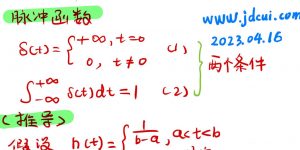 脉冲函数
www.jdcui.com
2023.04.16
δ(t) = { +∞, t=0 (1)
0, t≠0
两个条件
∫_{-∞}^{+∞} δ(t)dt = 1 (2)
(推导)
假设 h(t) = { 1/(b-a), a<t<b